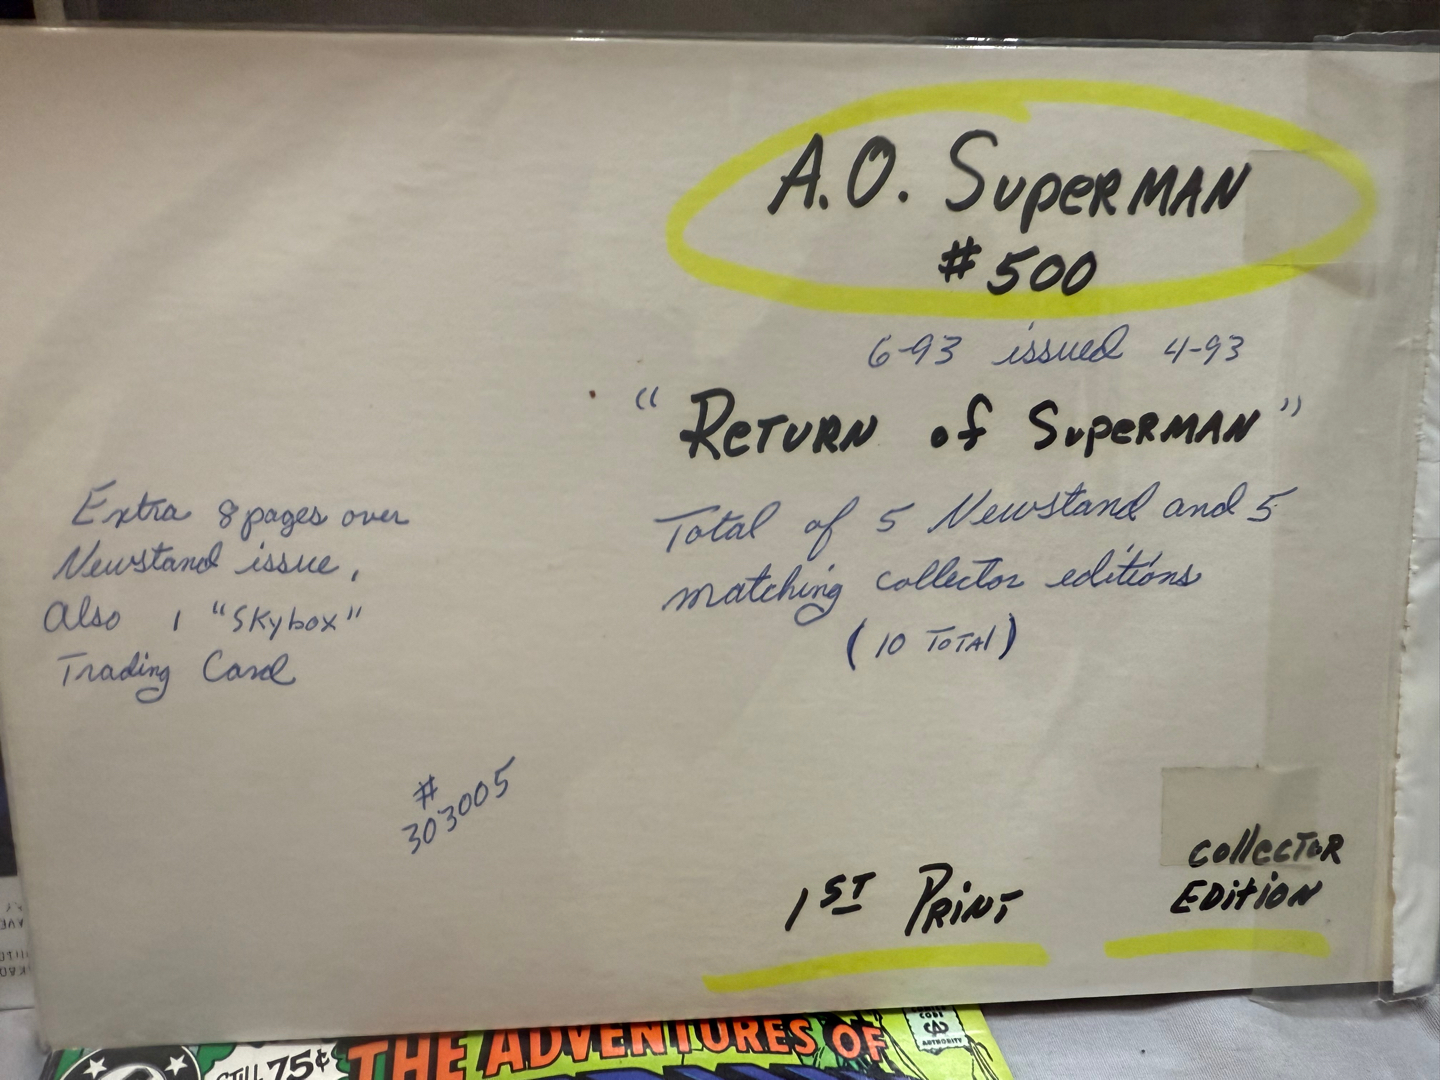 A.O. SUPERMAN
#500
6-93 issued 4-93
"RETURN of SUPERMAN"
Total of 5 Newstand and 5
matching collector editions
(10 TOTAL)
Extra 8 pages over
Newstand issue,
also 1 "Skybox"
Trading Card
#
303005
1ST PRINT
COLLECTOR
EDITION
STILL 75¢
THE ADVENTURES OF
COMICS
CODE
CA
AUTHORITY